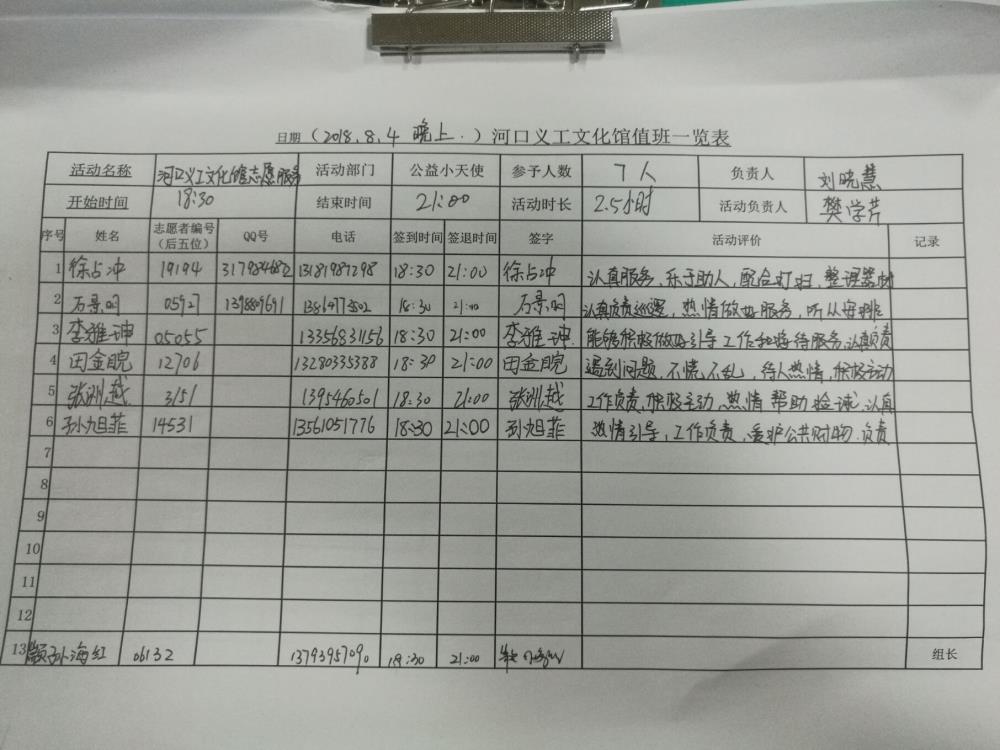 日期（2018.8.4 晚上.）河口义工文化馆值班一览表
活动名称 河口义工文化馆志愿服务 活动部门 公益小天使 参予人数 7人 负责人 刘晓慧
开始时间 18:30 结束时间 21:00 活动时长 2.5小时 活动负责人 樊学芹
序号 姓名 志愿者编号（后五位） QQ号 电话 签到时间 签退时间 签字 活动评价 记录
1 徐占冲 19194 13181987298 18:30 21:00 徐占冲 认真服务，乐于助人，配合打扫，整理器材
2 万景明 05927 139889691 18:30 21:00 万景明 认真负责巡逻，热情做好服务，听从安排
3 李雅珅 05055 13356831156 18:30 21:00 李雅珅 能够积极做好引导工作和接待服务，认真负责
4 田金睆 12706 13280333388 18:30 21:00 田金睆 遇到问题，不慌不乱，待人热情，积极主动
5 张洲越 3151 1395460501 18:30 21:00 张洲越 工作负责，积极主动，热情帮助捡球，认真
6 孙旭菲 14531 13561051776 18:30 21:00 孙旭菲 热情引导，工作负责，爱护公共财物，负责
7
8
9
10
11
12
13 颛孙海红 06132 13793957090 18:30 21:00 组长